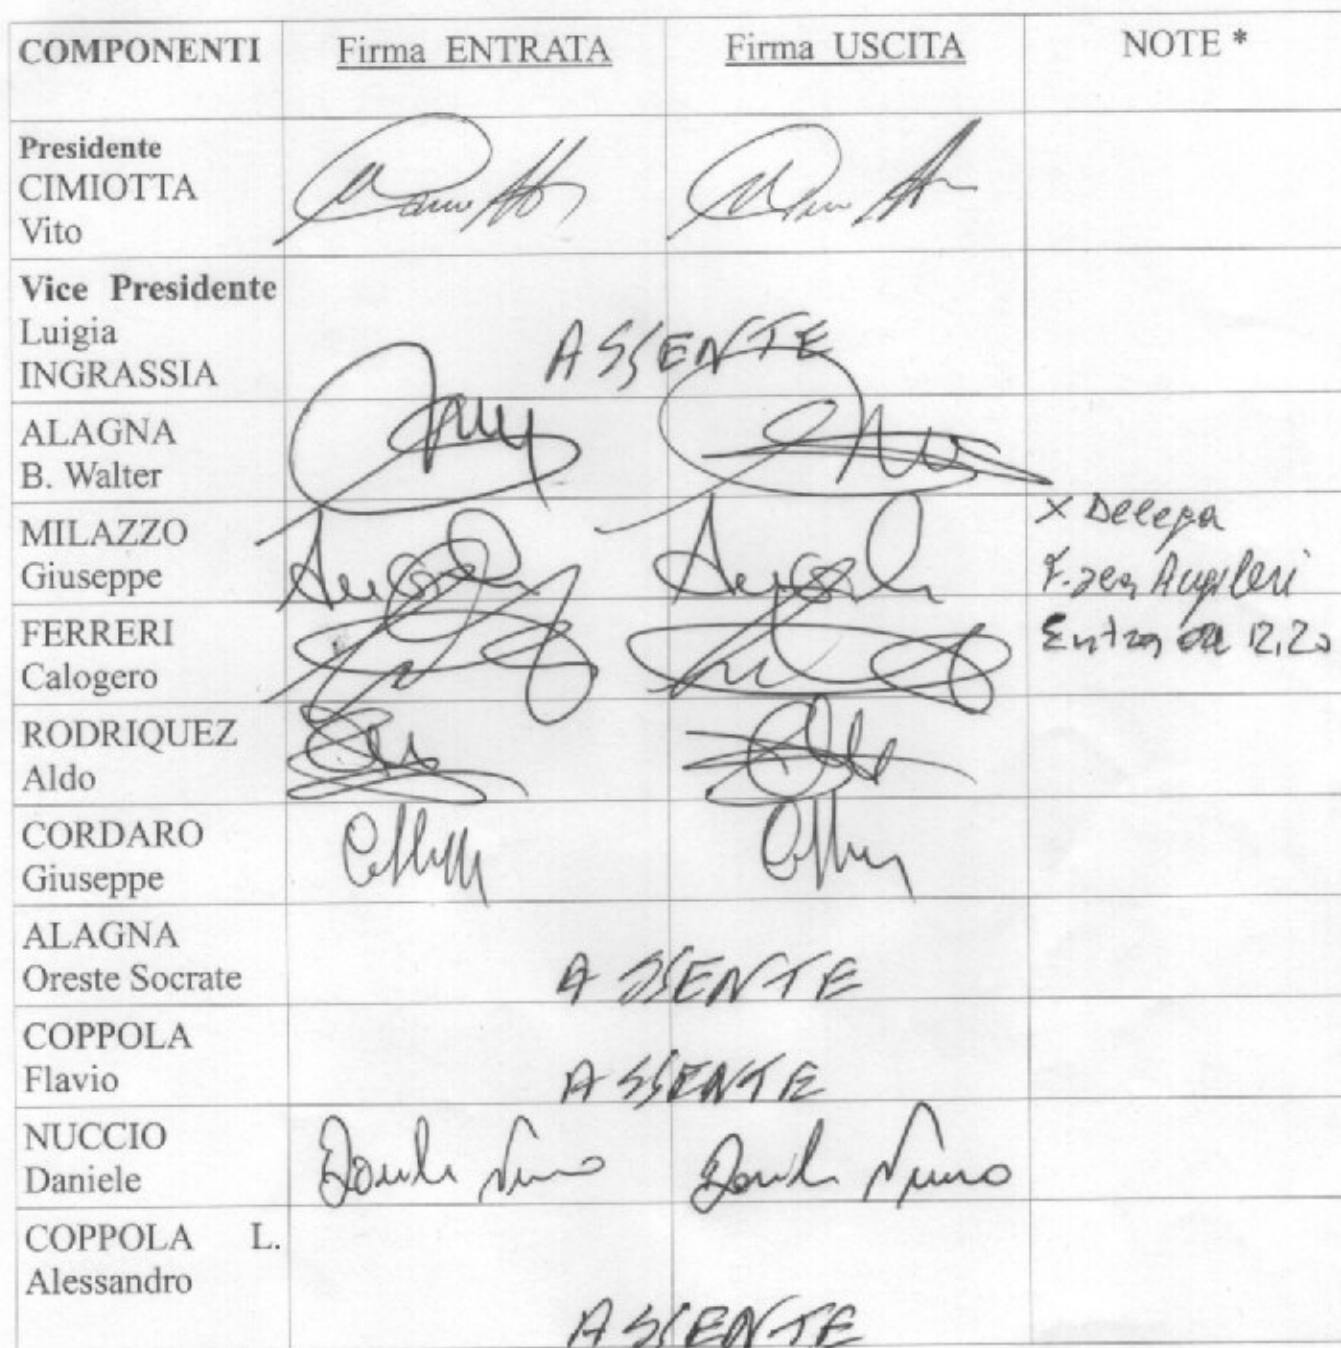 COMPONENTI Firma ENTRATA Firma USCITA NOTE *
Presidente
CIMIOTTA
Vito
Vice Presidente
Luigia
INGRASSIA
ASSENTE
ALAGNA
B. Walter
MILAZZO
Giuseppe
X Delega
Augileri
FERRERI
Calogero
Entra ore 12,20
RODRIQUEZ
Aldo
CORDARO
Giuseppe
ALAGNA
Oreste Socrate
ASSENTE
COPPOLA
Flavio
ASSENTE
NUCCIO
Daniele
COPPOLA L.
Alessandro
ASSENTE